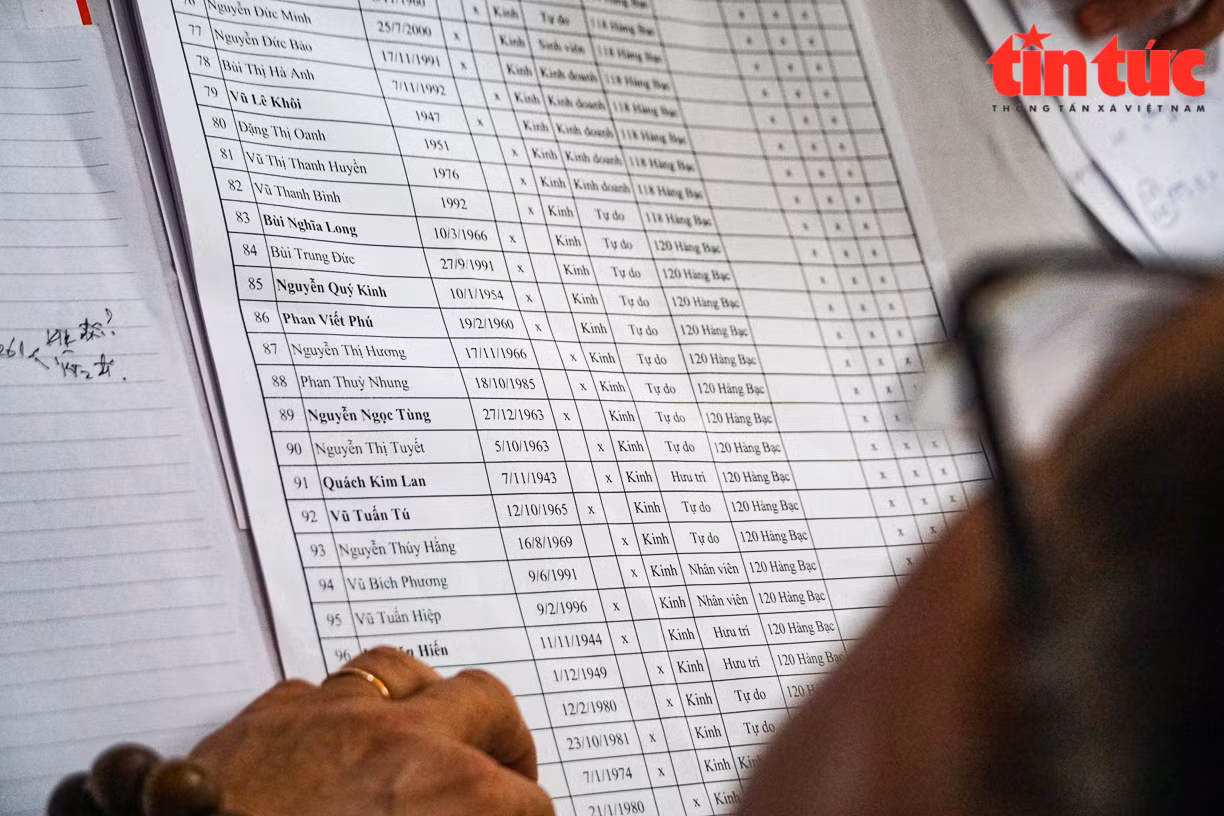 tin tức
THÔNG TẤN XÃ VIỆT NAM
76 Nguyễn Đức Minh 25/7/2000 x Kinh Sinh viên 118 Hàng Bạc x x x
77 Nguyễn Đức Bảo 17/11/1991 x Kinh Kinh doanh 118 Hàng Bạc x x x
78 Bùi Thị Hà Anh 7/11/1992 x Kinh Kinh doanh 118 Hàng Bạc x x x
79 Vũ Lê Khôi 1947 x Kinh Kinh doanh 118 Hàng Bạc x x x
80 Đặng Thị Oanh 1951 x Kinh Kinh doanh 118 Hàng Bạc x x x
81 Vũ Thị Thanh Huyền 1976 x Kinh Kinh doanh 118 Hàng Bạc x x x
82 Vũ Thanh Bình 1992 x Kinh Tự do 118 Hàng Bạc x x x
83 Bùi Nghĩa Long 10/3/1966 x Kinh Tự do 120 Hàng Bạc x x x
84 Bùi Trung Đức 27/9/1991 x Kinh Tự do 120 Hàng Bạc x x x
85 Nguyễn Quý Kinh 10/1/1954 x Kinh Tự do 120 Hàng Bạc x x x
86 Phan Viết Phú 19/2/1960 x Kinh Tự do 120 Hàng Bạc x x x
87 Nguyễn Thị Hương 17/11/1966 x Kinh Tự do 120 Hàng Bạc x x x
88 Phan Thuỳ Nhung 18/10/1985 x Kinh Tự do 120 Hàng Bạc x x
89 Nguyễn Ngọc Tùng 27/12/1963 x Kinh Tự do 120 Hàng Bạc x x
90 Nguyễn Thị Tuyết 5/10/1963 x Kinh Tự do 120 Hàng Bạc x x x
91 Quách Kim Lan 7/11/1943 x Kinh Hưu trí 120 Hàng Bạc x x x
92 Vũ Tuấn Tú 12/10/1965 x Kinh Tự do 120 Hàng Bạc x x x
93 Nguyễn Thúy Hằng 16/8/1969 x Kinh Tự do 120 Hàng Bạc x x
94 Vũ Bích Phương 9/6/1991 x Kinh Nhân viên 120 Hàng Bạc x
95 Vũ Tuấn Hiệp 9/2/1996 x Kinh Nhân viên 120 Hàng Bạc
96 Hiến 11/11/1944 x Kinh Hưu trí 120 Hàng Bạc
1/12/1949 x Kinh Hưu trí 120 Hàng Bạc
12/2/1980 x Kinh Tự do 120
23/10/1981 x Kinh Tự do
7/1/1974 x Kinh
21/1/1980 x Kinh